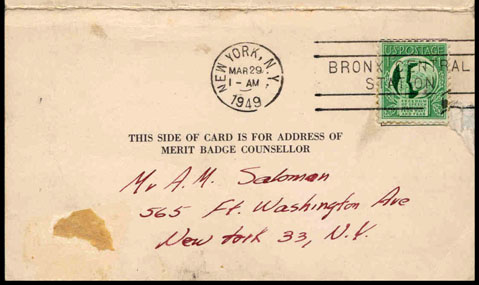 NEW YORK, N.Y.
MAR 29
1 - AM
1949
U.S. POSTAGE
BRONX CENTRAL
STATION
THIS SIDE OF CARD IS FOR ADDRESS OF
MERIT BADGE COUNSELLOR
Mr A.M. Salomon
565 Ft. Washington Ave
New York 33, N.Y.